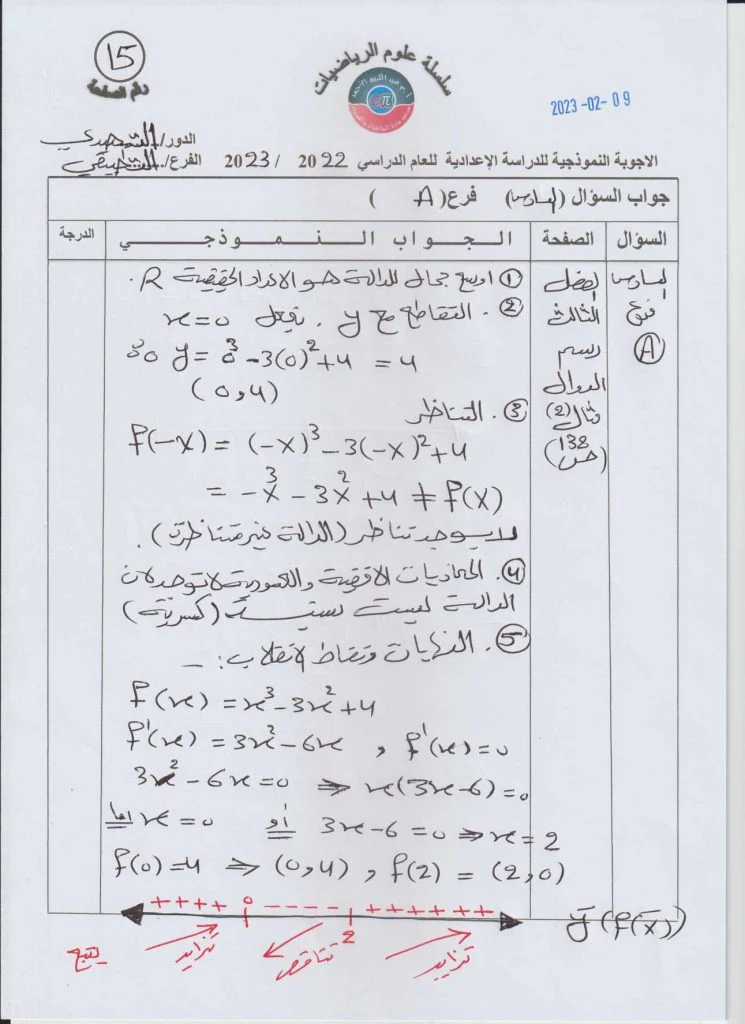 15
رقم الصفحة
سلسلة علوم الرياضيات
2023 -02- 09
الدور/ التمهيدي
الفرع/ التطبيقي
الاجوبة النموذجية للدراسة الإعدادية للعام الدراسي 2022 / 2023
جواب السؤال (السادس) فرع( A )
السؤال الصفحة الجواب النموذجي الدرجة
السادس
فرع
A
الفصل
الثالث
رسم
الدوال
مثال (2)
(ص 138)
① اوسع مجال للدالة هو الاعداد الحقيقية R.
② . التقاطع مع y . نجعل x=0
y = 0³ -3(0)²+4 = 4
(0,4)
③ . التناظر
f(-x) = (-x)³ -3(-x)²+4
= -x³ - 3x² +4 ≠ f(x)
لا يوجد تناظر (الدالة غير متناظرة).
④ . المحاذيات الافقية والعمودية لا توجد لان
الدالة ليست نسبية (كسرية)
⑤ . النهايات ونقاط الانقلاب : _
f(x) = x³-3x²+4
f'(x) = 3x²-6x , f'(x)=0
3x² -6x=0 ⇒ x(3x-6)=0
اما x=0 أو 3x-6=0 ⇒ x=2
f(0)=4 ⇒ (0,4) , f(2) = (2,0)
++++ 0 ---- ++++++
2
ȳ (f'(x))
تزايد تناقص تزايد
يتبع